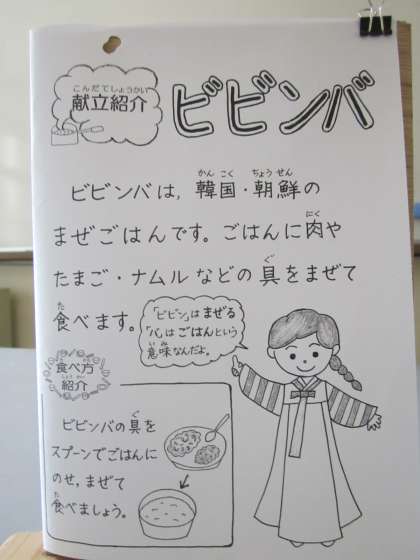 こんだてしょうかい
献立紹介
ビビンバ
かんこく ちょうせん
ビビンバは,韓国・朝鮮の
にく
まぜごはんです。ごはんに肉や
ぐ
たまご・ナムルなどの具をまぜて
た
食べます。
「ビビン」はまぜる
「バ」はごはんという
いみ
意味なんだよ。
た かた
食べ方
しょうかい
紹介
ぐ
ビビンバの具を
スプーンでごはんに
のせ,まぜて
た
食べましょう。